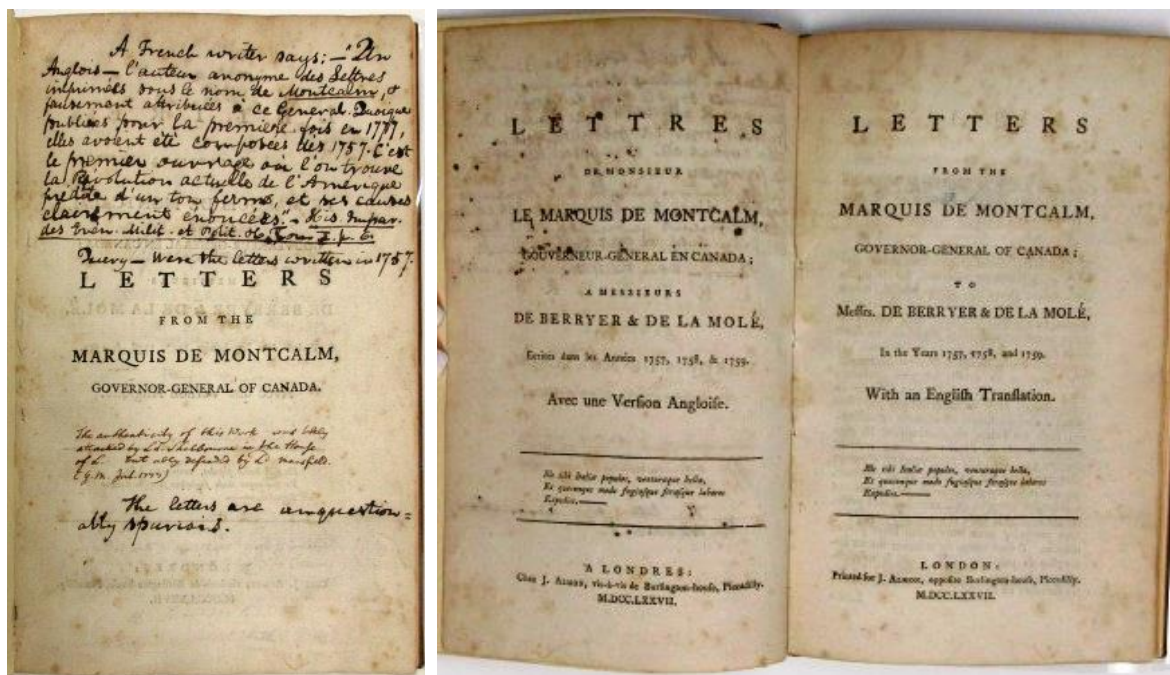 A French writer says: — "Un
Anglois — l'auteur anonyme des Lettres
imprimées sous le nom de Montcalm, &
faussement attribuées à ce General. Quoique
publiées pour la premiere fois en 1777,
elles avoient été composées dès 1757. C'est
le premier ouvrage où l'on trouve
la Révolution actuelle de l'Amérique
prédite d'un ton ferme, et ses causes
clairement énoncées." — His. Impar.
des Even. Milit. et Polit. &c. Tom I. p.
Query — Were the letters written in 1757.
LETTERS
FROM THE
MARQUIS DE MONTCALM,
GOVERNOR-GENERAL OF CANADA.
The authenticity of this work was
attacked by Ld. Shelbourne in the House
of L. but ably defended by Ld. Mansfield.
(G.M. Jul. 1777)
The letters are unquestion=
ably spurious.
LETTRES
DE MONSIEUR
LE MARQUIS DE MONTCALM,
GOUVERNEUR-GÉNÉRAL EN CANADA;
A MESSIEURS
DE BERRYER & DE LA MOLÉ,
Ecrites dans les Années 1757, 1758, & 1759.
Avec une Verſion Angloiſe.
Ille tibi Italiæ populos, venturaque bella,
Et quocunque modo fugiaſque feraſque labores
Expediet.——
A LONDRES:
Chez J. ALMON, vis-à-vis de Burlington-houſe, Piccadilly.
M.DCC.LXXVII.
LETTERS
FROM THE
MARQUIS DE MONTCALM,
GOVERNOR-GENERAL OF CANADA;
TO
Meſſrs. DE BERRYER & DE LA MOLÉ,
In the Years 1757, 1758, and 1759.
With an Engliſh Tranſlation.
Ille tibi Italiæ populos, venturaque bella,
Et quocunque modo fugiaſque feraſque labores
Expediet.——
LONDON:
Printed for J. ALMON, oppoſite Burlington-houſe, Piccadilly.
M.DCC.LXXVII.